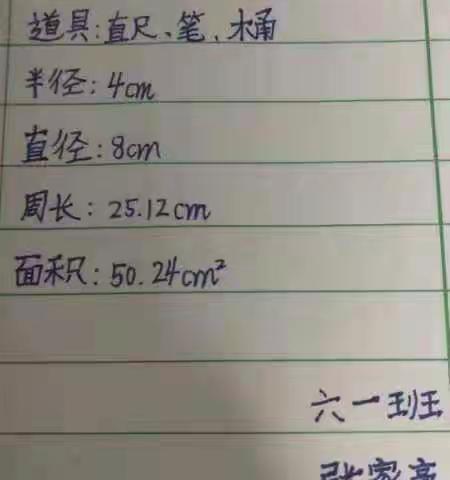 道具:直尺、笔、木桶
半径:4cm
直径:8cm
周长:25.12cm
面积:50.24cm²
六一班
张家亮